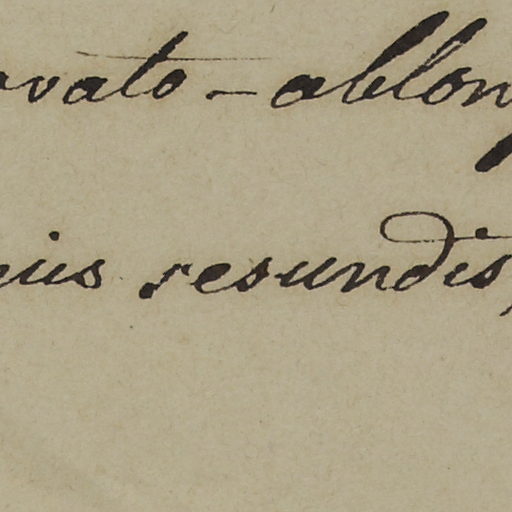 ovato-ablong
ius resundis,